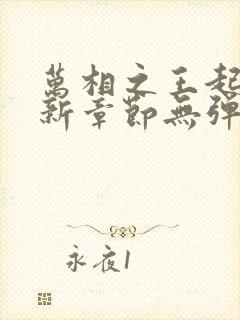 萬相之王起
新章節無彈
永夜1